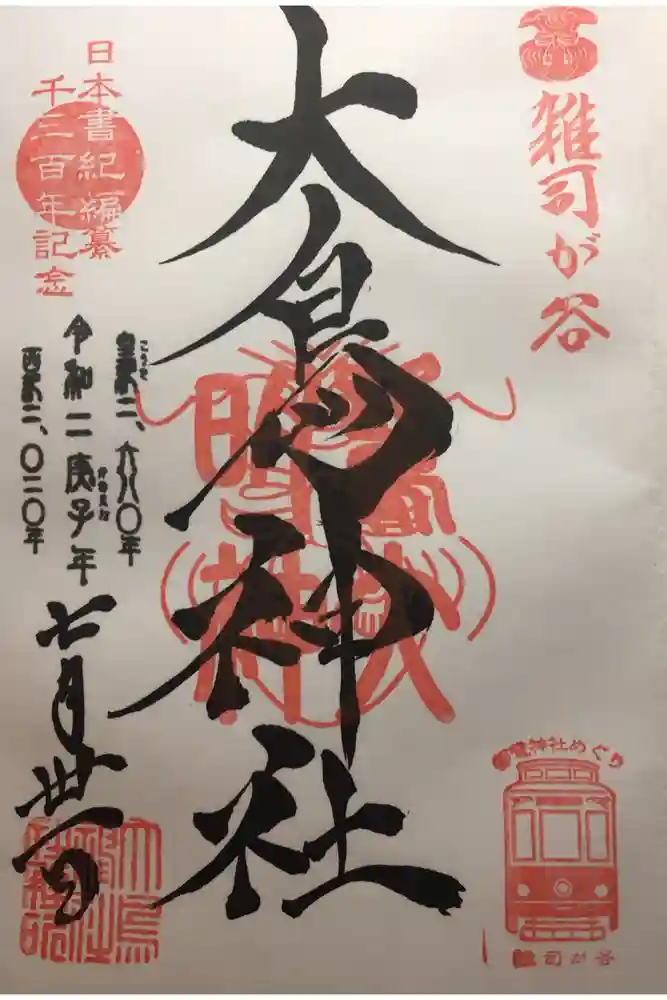 雑司が谷
大鳥神社
日本書紀編纂
千三百年記念
皇紀二、六八〇年
令和二庚子年
西暦二、〇二〇年
七月卅一日
神社めぐり
雑司が谷